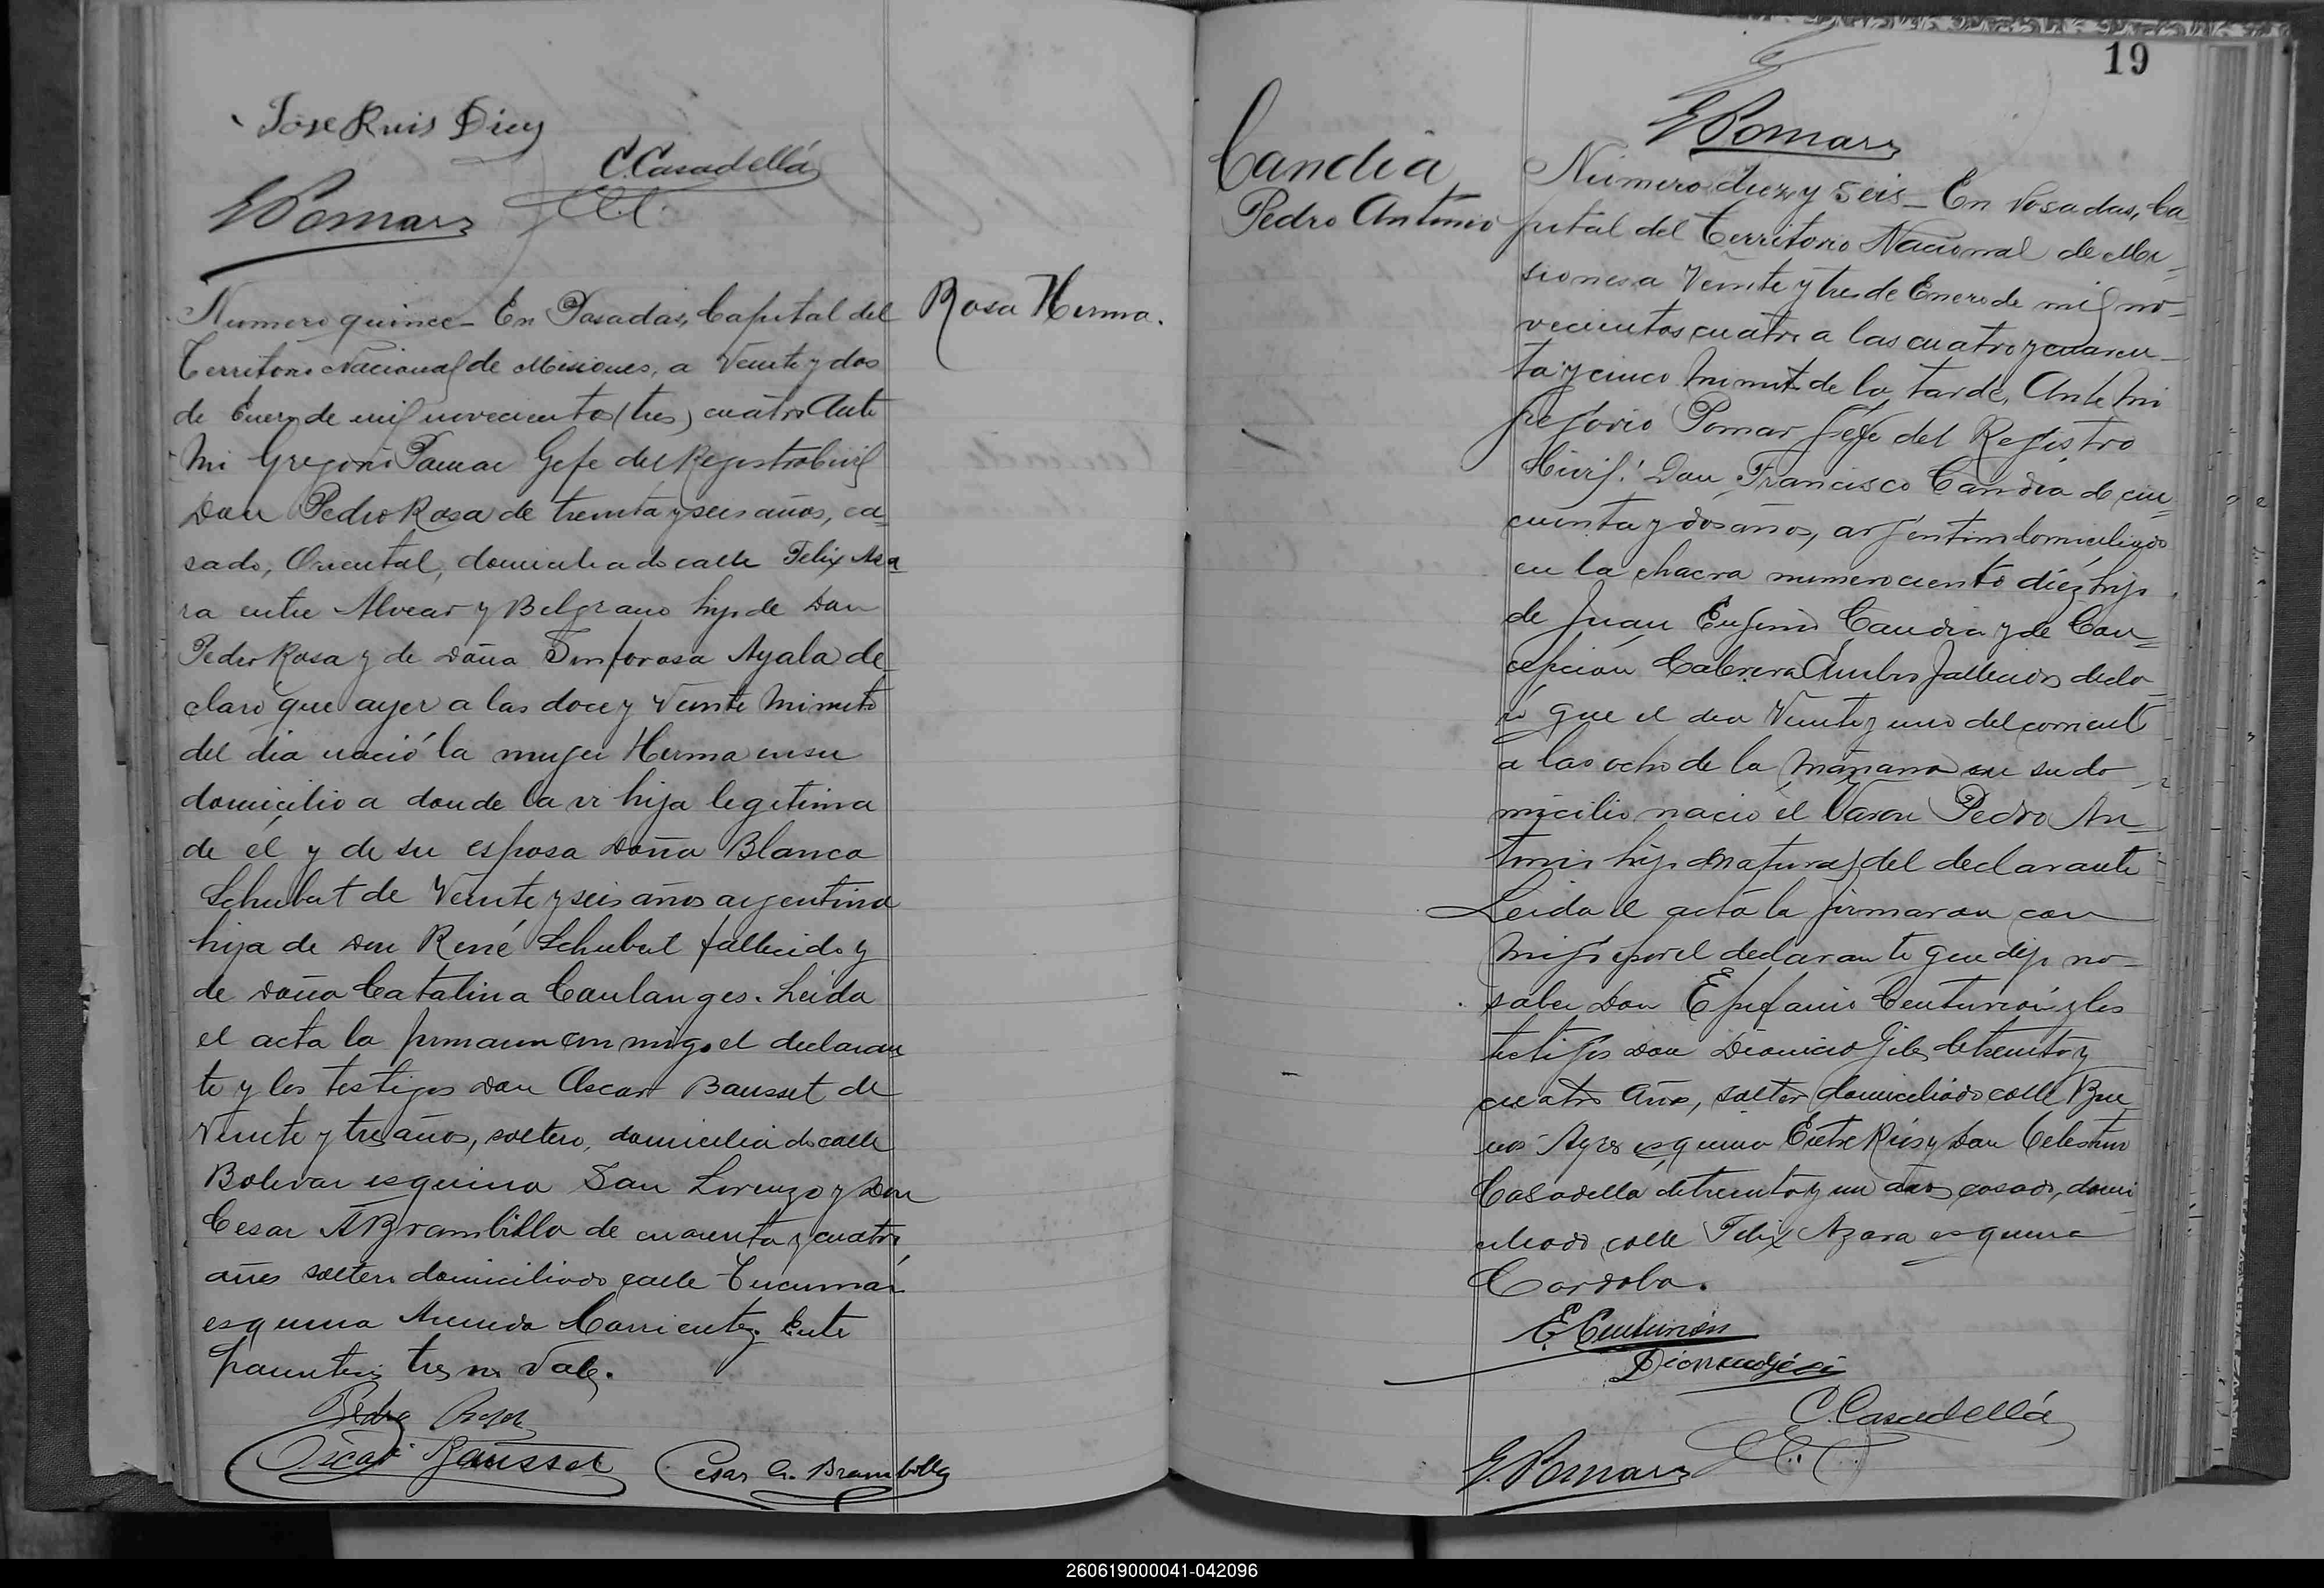 Jose Ruis Diez
C. Casadellá
G Pomar
Rosa Herma.
Numero quince - En Posadas, Capital del
Territorio Nacional de Misiones, a Veinte y dos
de Enero de mil novecientos (tres) cuatro Ante
Mi Gregorio Pomar Gefe del Registro Civil
Don Pedro Rosa de treinta y seis años, ca-
sado, Oriental, domiciliado calle Felix Aza
ra entre Alvear y Belgrano hijo de Don
Pedro Rosa y de Doña Sinforosa Ayala de-
claró que ayer a las doce y Veinte Minuto
del dia nació la muger Herma en su
domicilio a donde la vi hija legitima
de él y de su esposa Doña Blanca
Schubert de Veinte y seis años argentina
hija de Don René Schubert fallecido y
de Doña Catalina Caulanges. Leida
el acta la firmaron con migo el declaran
te y los testigos Don Oscar Bausset de
Veinte y tres años, soltero, domiciliado calle
Bolivar esquina San Lorenzo y Don
Cesar A Brambilla de cuarenta y cuatro
años soltero domiciliado calle Tucumán
esquina Avenida Corrientes. Entre
parentesis tres no Vale.
Pedro Rosa
Oscar Bausset Cesar A. Brambilla
19
G Pomar
Candia
Pedro Antonio
Número diez y seis - En Posadas, Ca
pital del Territorio Nacional de Mi-
siones a Veinte y tres de Enero de mil no-
vecientos cuatro a las cuatro y cuaren-
ta y cinco Minut de la tarde, Ante Mi
Gregorio Pomar Gefe del Registro
Civil! Don Francisco Candia de cin
cuenta y dos años, argentino domiciliado
en la chacra numero ciento diez hijo
de Juan Eugenio Candia y de Con-
cepción Cabrera Ambos fallecidos decla-
ró que el dia Veinte y uno del corriente
a las ocho de la Mañana en su do-
micilio nació el Varon Pedro An-
tonio hijo natural del declarante
Leida el acta la firmaron con
migo por el declarante que dijo no-
saber Don Epifanio Centurión y los
testigos Don Dionicio Giles de treinta y
cuatro Años, soltero domiciliado calle Bue
nos Ayres esquina Entre Rios y Don Celestino
Casadella de treinta y un años casado, domi
ciliado calle Felix Azara esquina
Cordoba.
E. Centurión
C. Casadellá
G. Pomar
260619000041-042096